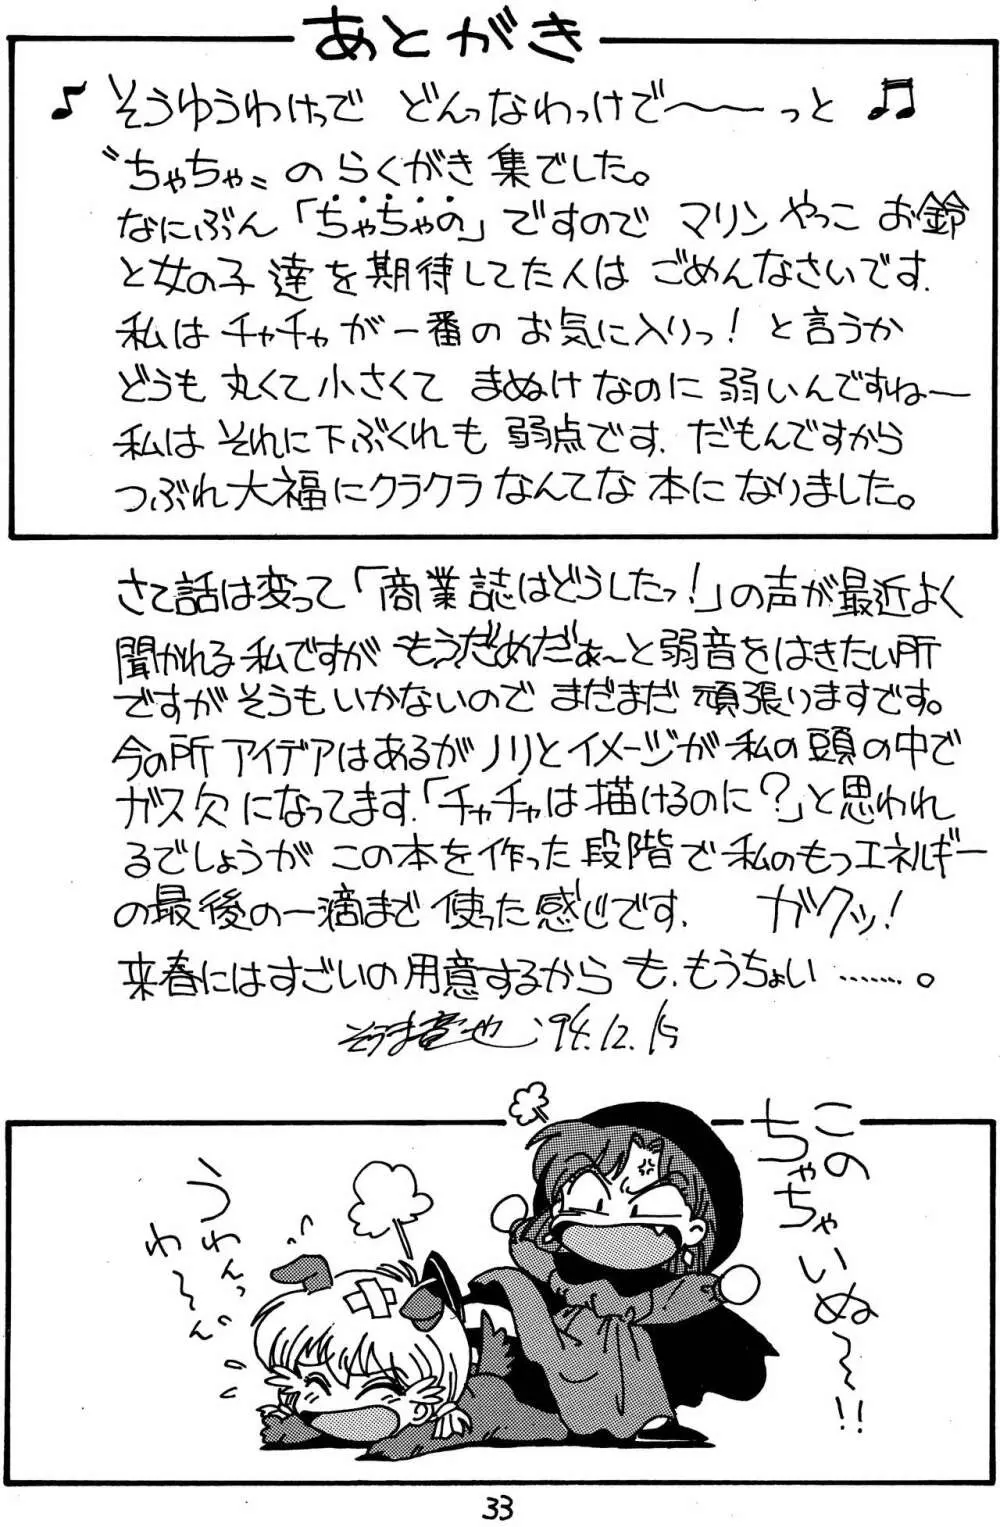 あとがき
♪そうゆうわけっで どんっなわっけで〜〜っと♫
〝ちゃちゃ〟のらくがき集でした。
なにぶん「ちゃちゃの」ですので マリンやっこ お鈴
と女の子達を期待してた人は ごめんなさいです.
私はチャチャが一番の お気に入りっ! と言うか
どうも 丸くて小さくて まぬけなのに 弱いんですね〜
私は それに下ぶくれも 弱点です. だもんですから
つぶれ大福にクラクラ なんてな 本になりました。
さて話は変って「商業誌はどうしたっ!」の声が最近よく
聞かれる私ですが もうだめだぁ〜と弱音をはきたい所
ですが そうもいかないので まだまだ 頑張りますです。
今の所 アイデアはあるがノリとイメージが 私の頭の中で
ガス欠になってます.「チャチャは描けるのに?」と思われ
るでしょうが この本を作った段階で 私のもつエネルギー
の最後の一滴まで 使った感じです. ガクッ!
来春にはすごいの用意するから も、もうちょい………。
そうま竜也 '94.12.15
このちゃちゃいぬ〜〜!!
うわんっ
わ〜ん
33